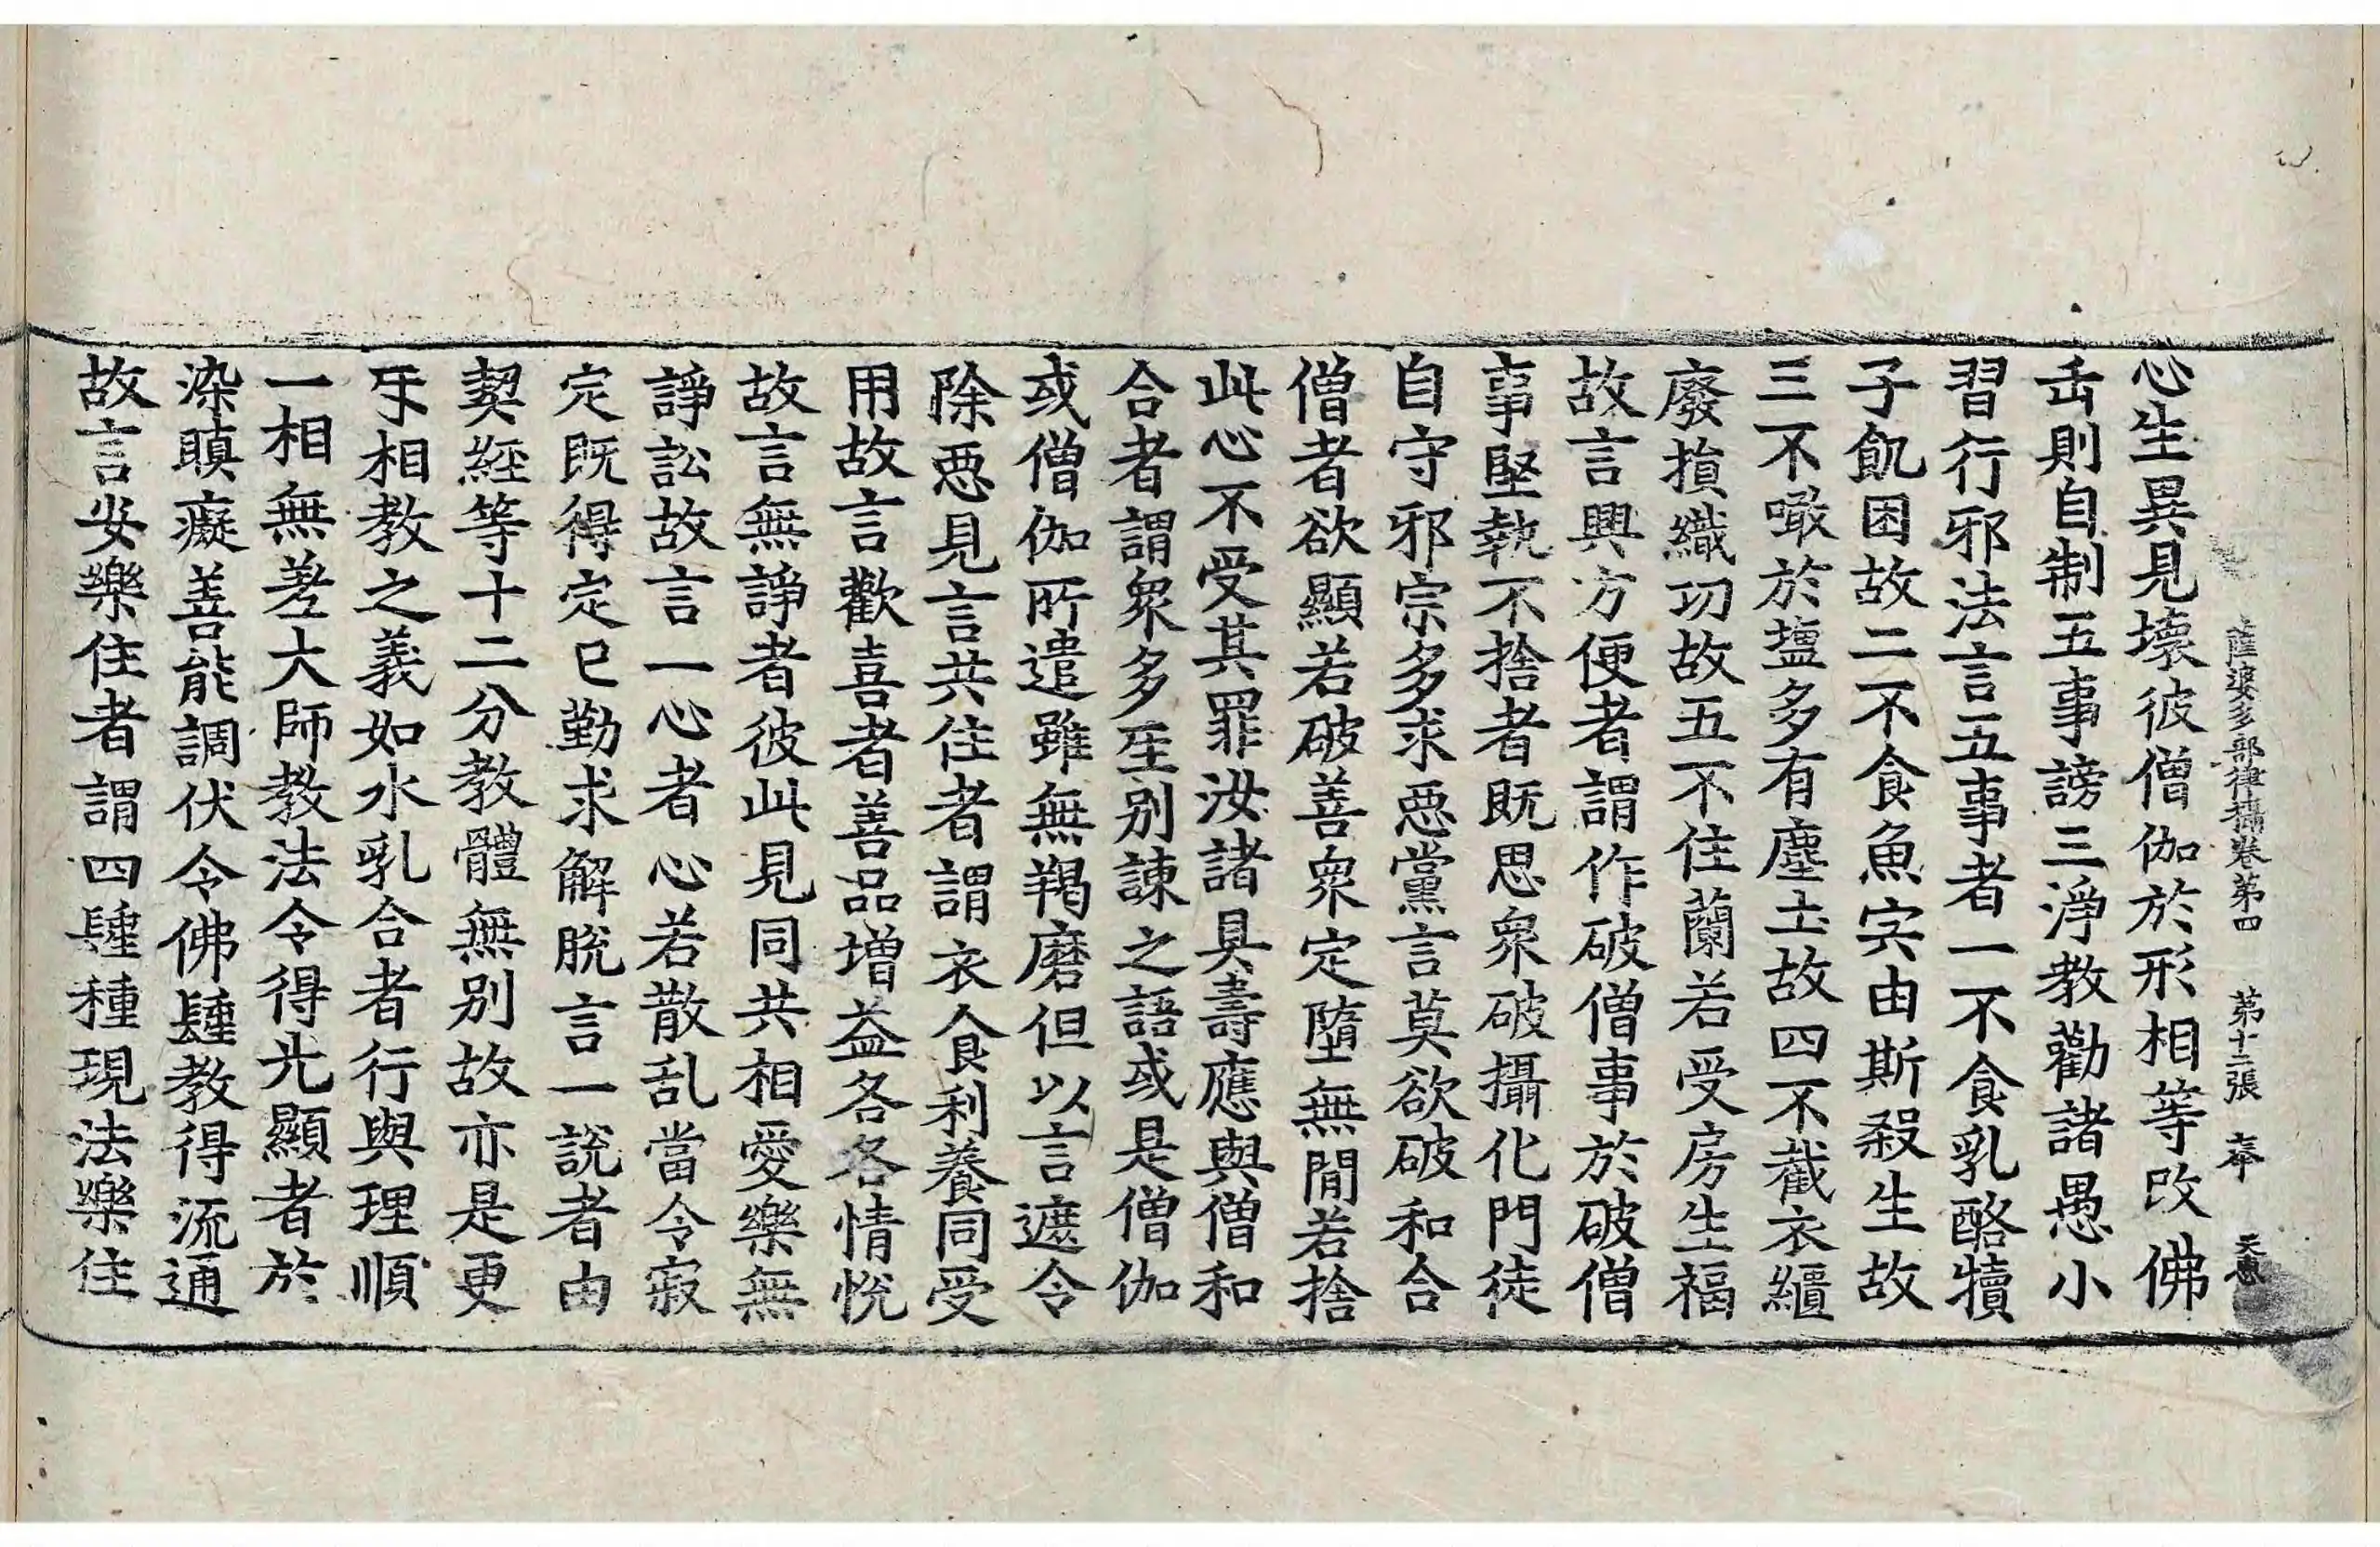 薩婆多部律攝卷第四　第十二張　奉　天惠
心生異見壞彼僧伽於形相等改佛
缶則自制五事謗三淨教勸諸愚小
習行邪法言五事者一不食乳酪犢
子飢困故二不食魚宍由斯殺生故
三不噉於塩多有塵土故四不截衣繀
廢損織功故五不住蘭若受房生福
故言興方便者謂作破僧事於破僧
事堅執不捨者既思衆破攝化門徒
自守邪宗多求惡黨言莫欲破和合
僧者欲顯若破善衆定墮無間若捨
此心不受其罪汝諸具壽應與僧和
合者謂衆多苼別諫之語或是僧伽
或僧伽所遣雖無羯磨但以言遮令
除惡見言共住者謂衣食利養同受
用故言歡喜者善品增益各各情悅
故言無諍者彼此見同共相愛樂無
諍訟故言一心者心若散乱當令寂
定既得定已勤求解脫言一說者由
契經等十二分教體無別故亦是更
㸦相教之義如水乳合者行與理順
一相無差大師教法令得光顯者於
染瞋癡善能調伏令佛聖教得流通
故言安樂住者謂四種種現法樂住